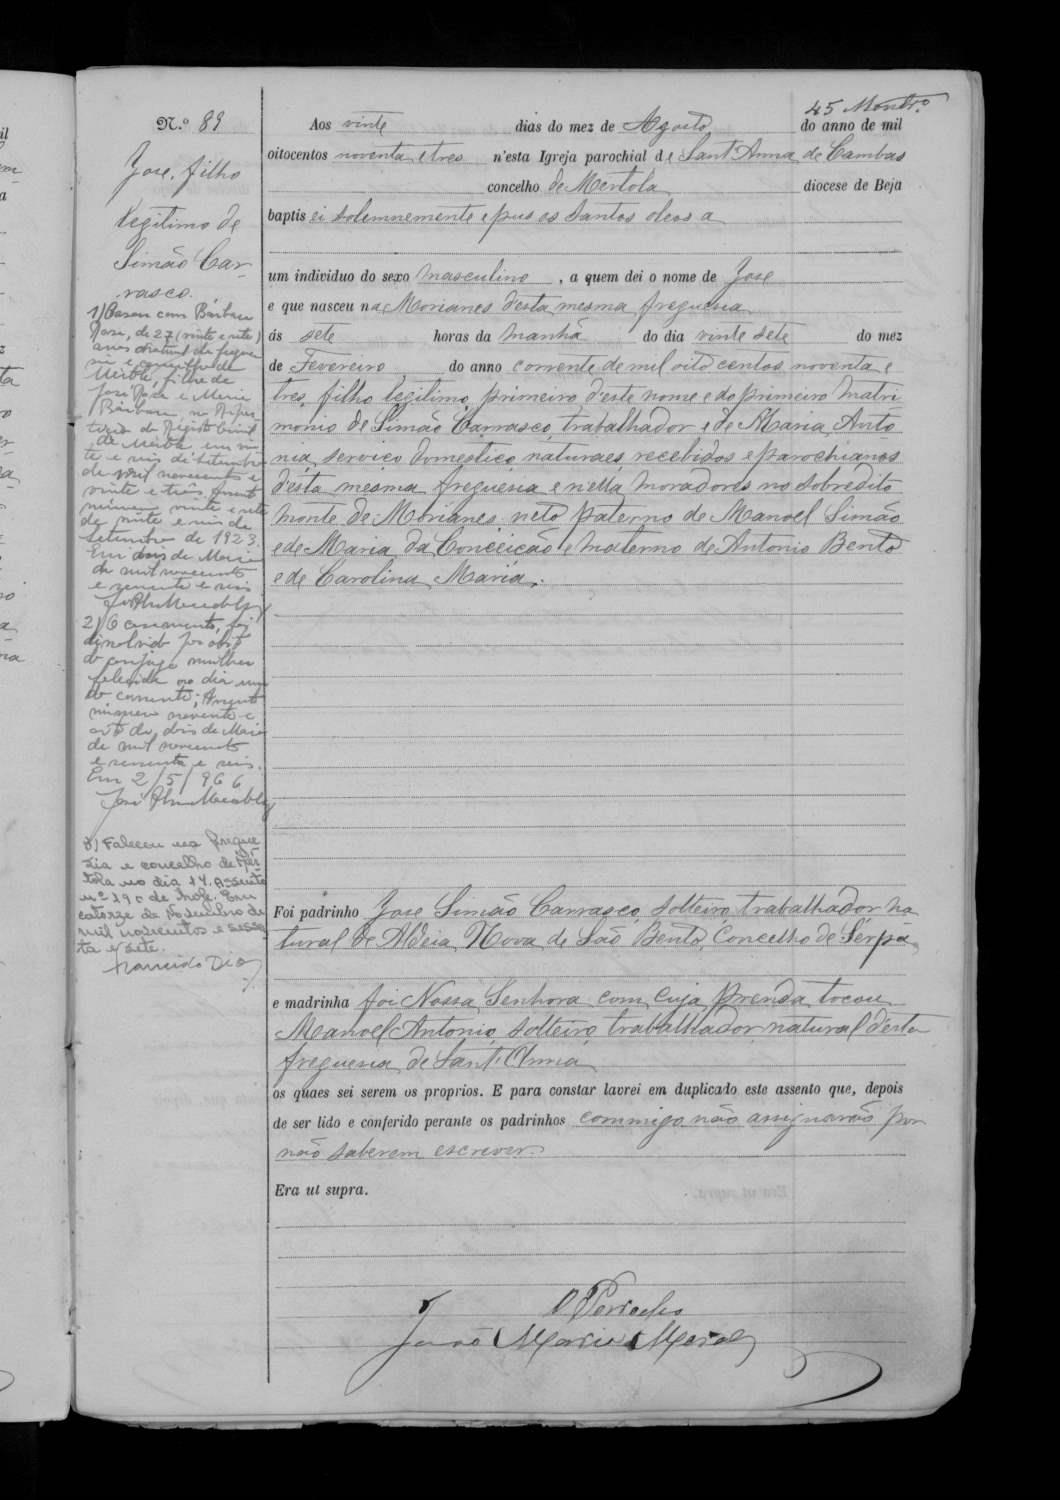 45 Montrº
N.º 89
Jose, filho
legitimo de
Simão Car-
rasco.
1) Casou com Bárbara
Rosa, de 27 (vinte e sete)
anos natural da fregue
sia e concelho de
Mértola, filha de
José Rosa e Maria
Bárbara, na Repar
tição do Registo Civil
de Mértola em vin
te e seis de setembro
de mil novecentos e
vinte e três. Assento
número vinte e sete
de vinte e seis de
Setembro de 1923.
Em dois de Maio
de mil novecentos
e sessenta e seis
2) O casamento foi
dissolvido por óbito
do conjuge mulher
falecida no dia um
do corrente; Assento
número noventa e
oito de dois de Maio
de mil novecentos
e sessenta e seis.
Em 2/5/966
3) Faleceu na fregue-
sia e concelho de Mér
tola no dia 14. Assento
nº 190 de hoje. Em
catorze de Novembro de
mil novecentos e sessen
ta e sete.
Aos vinte dias do mez de Agosto do anno de mil
oitocentos noventa e tres n'esta Igreja parochial de Sant'Anna de Cambas
concelho de Mertola diocese de Beja
baptisei solemnemente e pus os Santos oleos a
um individuo do sexo masculino, a quem dei o nome de Jose
e que nasceu na Morianes desta mesma freguesia
ás sete horas da manhã do dia vinte sete do mez
de Fevereiro do anno corrente de mil oito centos noventa e
tres, filho legitimo, primeiro d'este nome e do primeiro matri
monio de Simão Carrasco, trabalhador e de Maria Anto
nia, serviço domestico, naturaes, recebidos e parochianos
d'esta mesma freguesia e n'ella moradores no sobredito
monte de Morianes, neto paterno de Manoel Simão
e de Maria da Conceicão e materno de Antonio Bento
e de Carolina Maria.
Foi padrinho Jose Simão Carrasco, solteiro, trabalhador, na
tural de Aldeia Nova de São Bento, Concelho de Serpa,
e madrinha foi Nossa Senhora com cuja prenda tocou
Manoel Antonio, solteiro, trabalhador, natural d'esta
freguesia de Sant'Anna
os quaes sei serem os proprios. E para constar lavrei em duplicado este assento que, depois
de ser lido e conferido perante os padrinhos commigo não assignarão por
não saberem escrever.
Era ut supra.
O Parocho